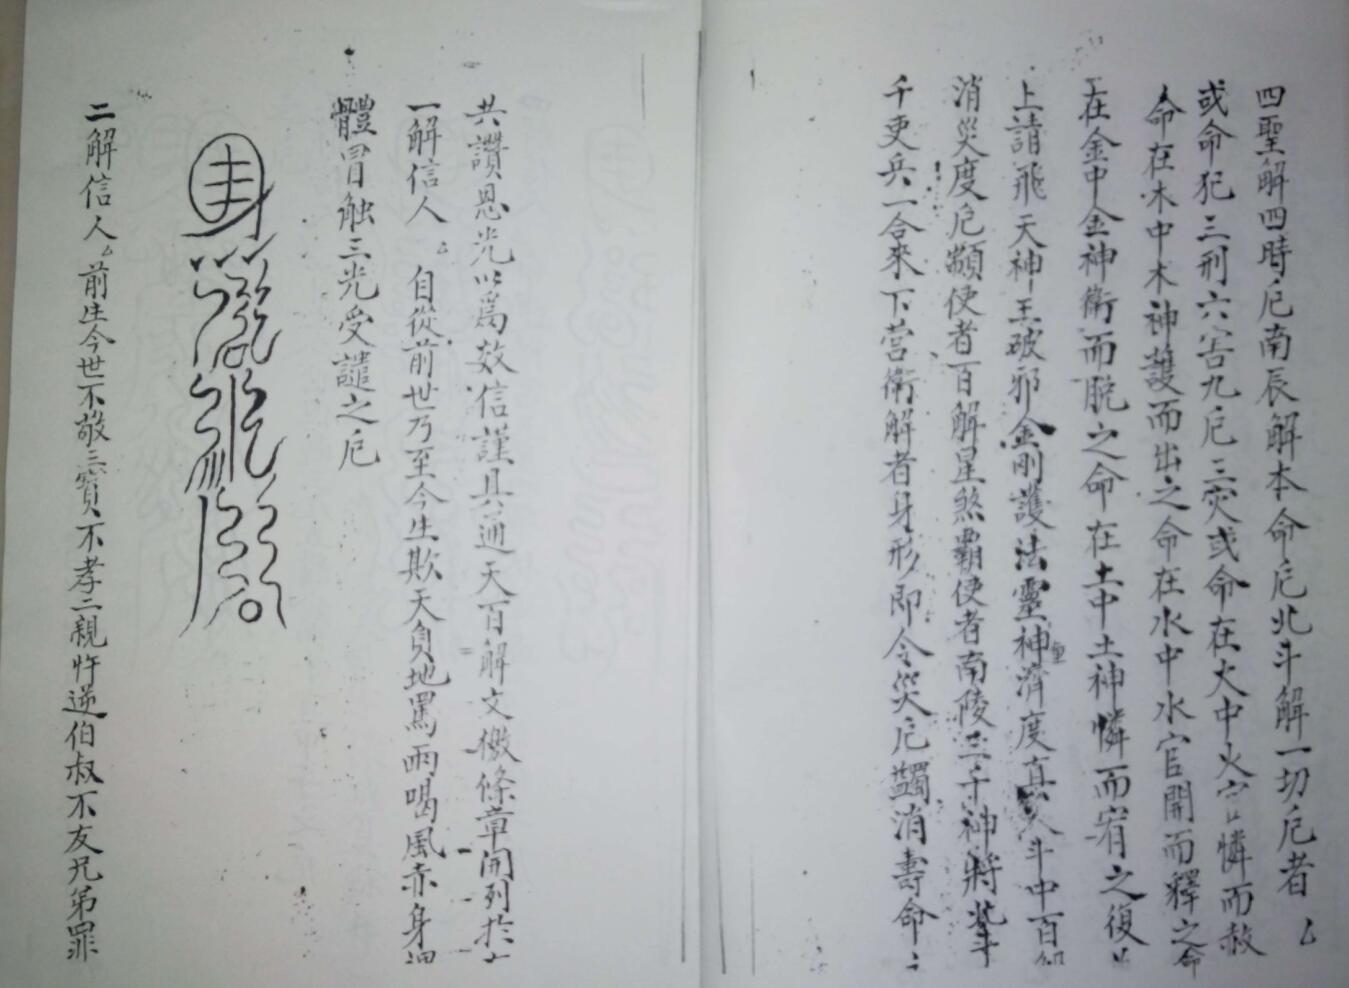 四聖解四時厄南辰解本命厄北斗解一切厄者
或命犯三刑六害九厄三灾或命在火中火官憐而赦
命在木中木神護而出之命在水中水官開而釋之命
在金中金神衛而脱之命在土中土神憐而宥之復
上請飛天神王破邪金剛護法靈神濟度真人斗中百解
消災度厄顯使者百解星煞霸使者南陵三千神將北斗
千吏兵一合來下营衛解者身形即令災厄蠲消壽命
共讚恩光以爲效信謹具通天百解文檄條章開列於
一解信人 自從前世乃至今生欺天負地罵雨喝風赤身
體冒触三光受譴之厄
二解信人 前生今世不敬三寶不孝二親忤逆伯叔不友兄弟罪